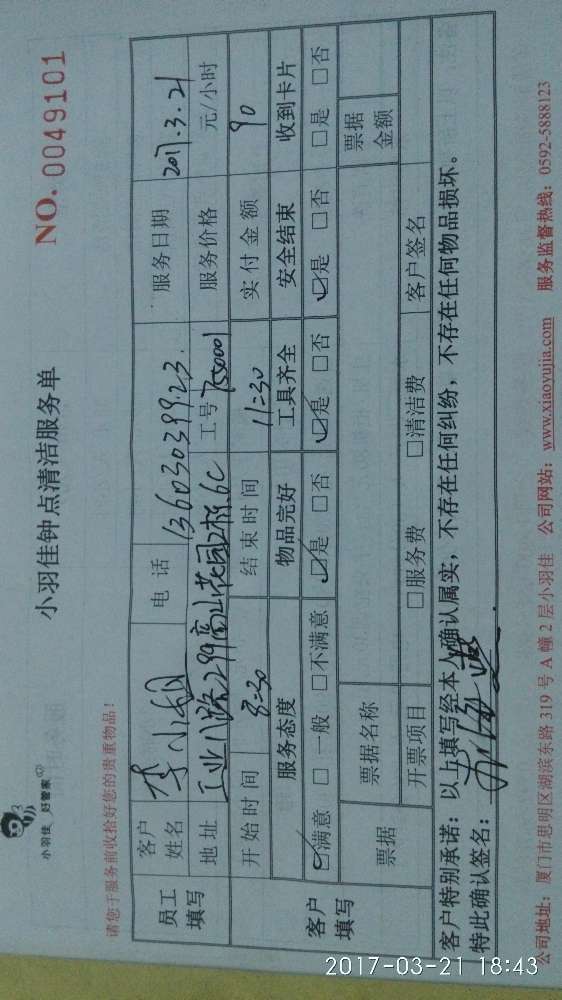 小羽佳 好管家
小羽佳钟点清洁服务单
NO. 0049101
请您于服务前收拾好您的贵重物品！
员工填写
客户姓名 李小姐 电话 13603039923 服务日期 2017.3.21
地址 工业八路299高山花园2栋6C 工号 755001 服务价格 元/小时
开始时间 8:30 结束时间 11:30 实付金额 90
客户填写
服务态度 物品完好 工具齐全 安全结束 收到卡片
☑满意 □一般 □不满意 ☑是 □否 ☑是 □否 ☑是 □否 □是 □否
票据 票据名称 票据金额
开票项目 □服务费 □清洁费 客户签名
客户特别承诺：以上填写经本人确认属实，不存在任何纠纷，不存在任何物品损坏。
特此确认签名：
公司地址：厦门市思明区湖滨东路 319 号 A 幢 2 层小羽佳 公司网站：www.xiaoyujia.com 服务监督热线：0592-5888123
2017-03-21 18:43